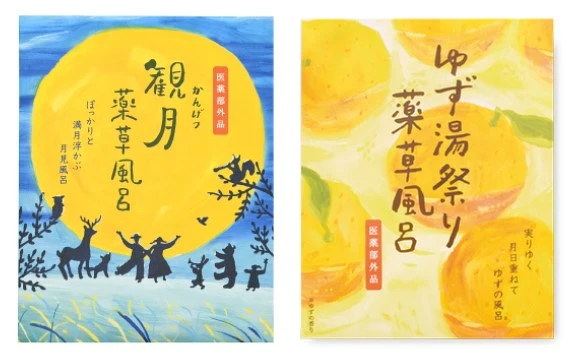 観月
かんげつ
薬草風呂
医薬部外品
ぽっかりと
満月浮かぶ
月見風呂
ゆず湯祭り
薬草風呂
医薬部外品
実りゆく
月日重ねて
ゆずの風呂